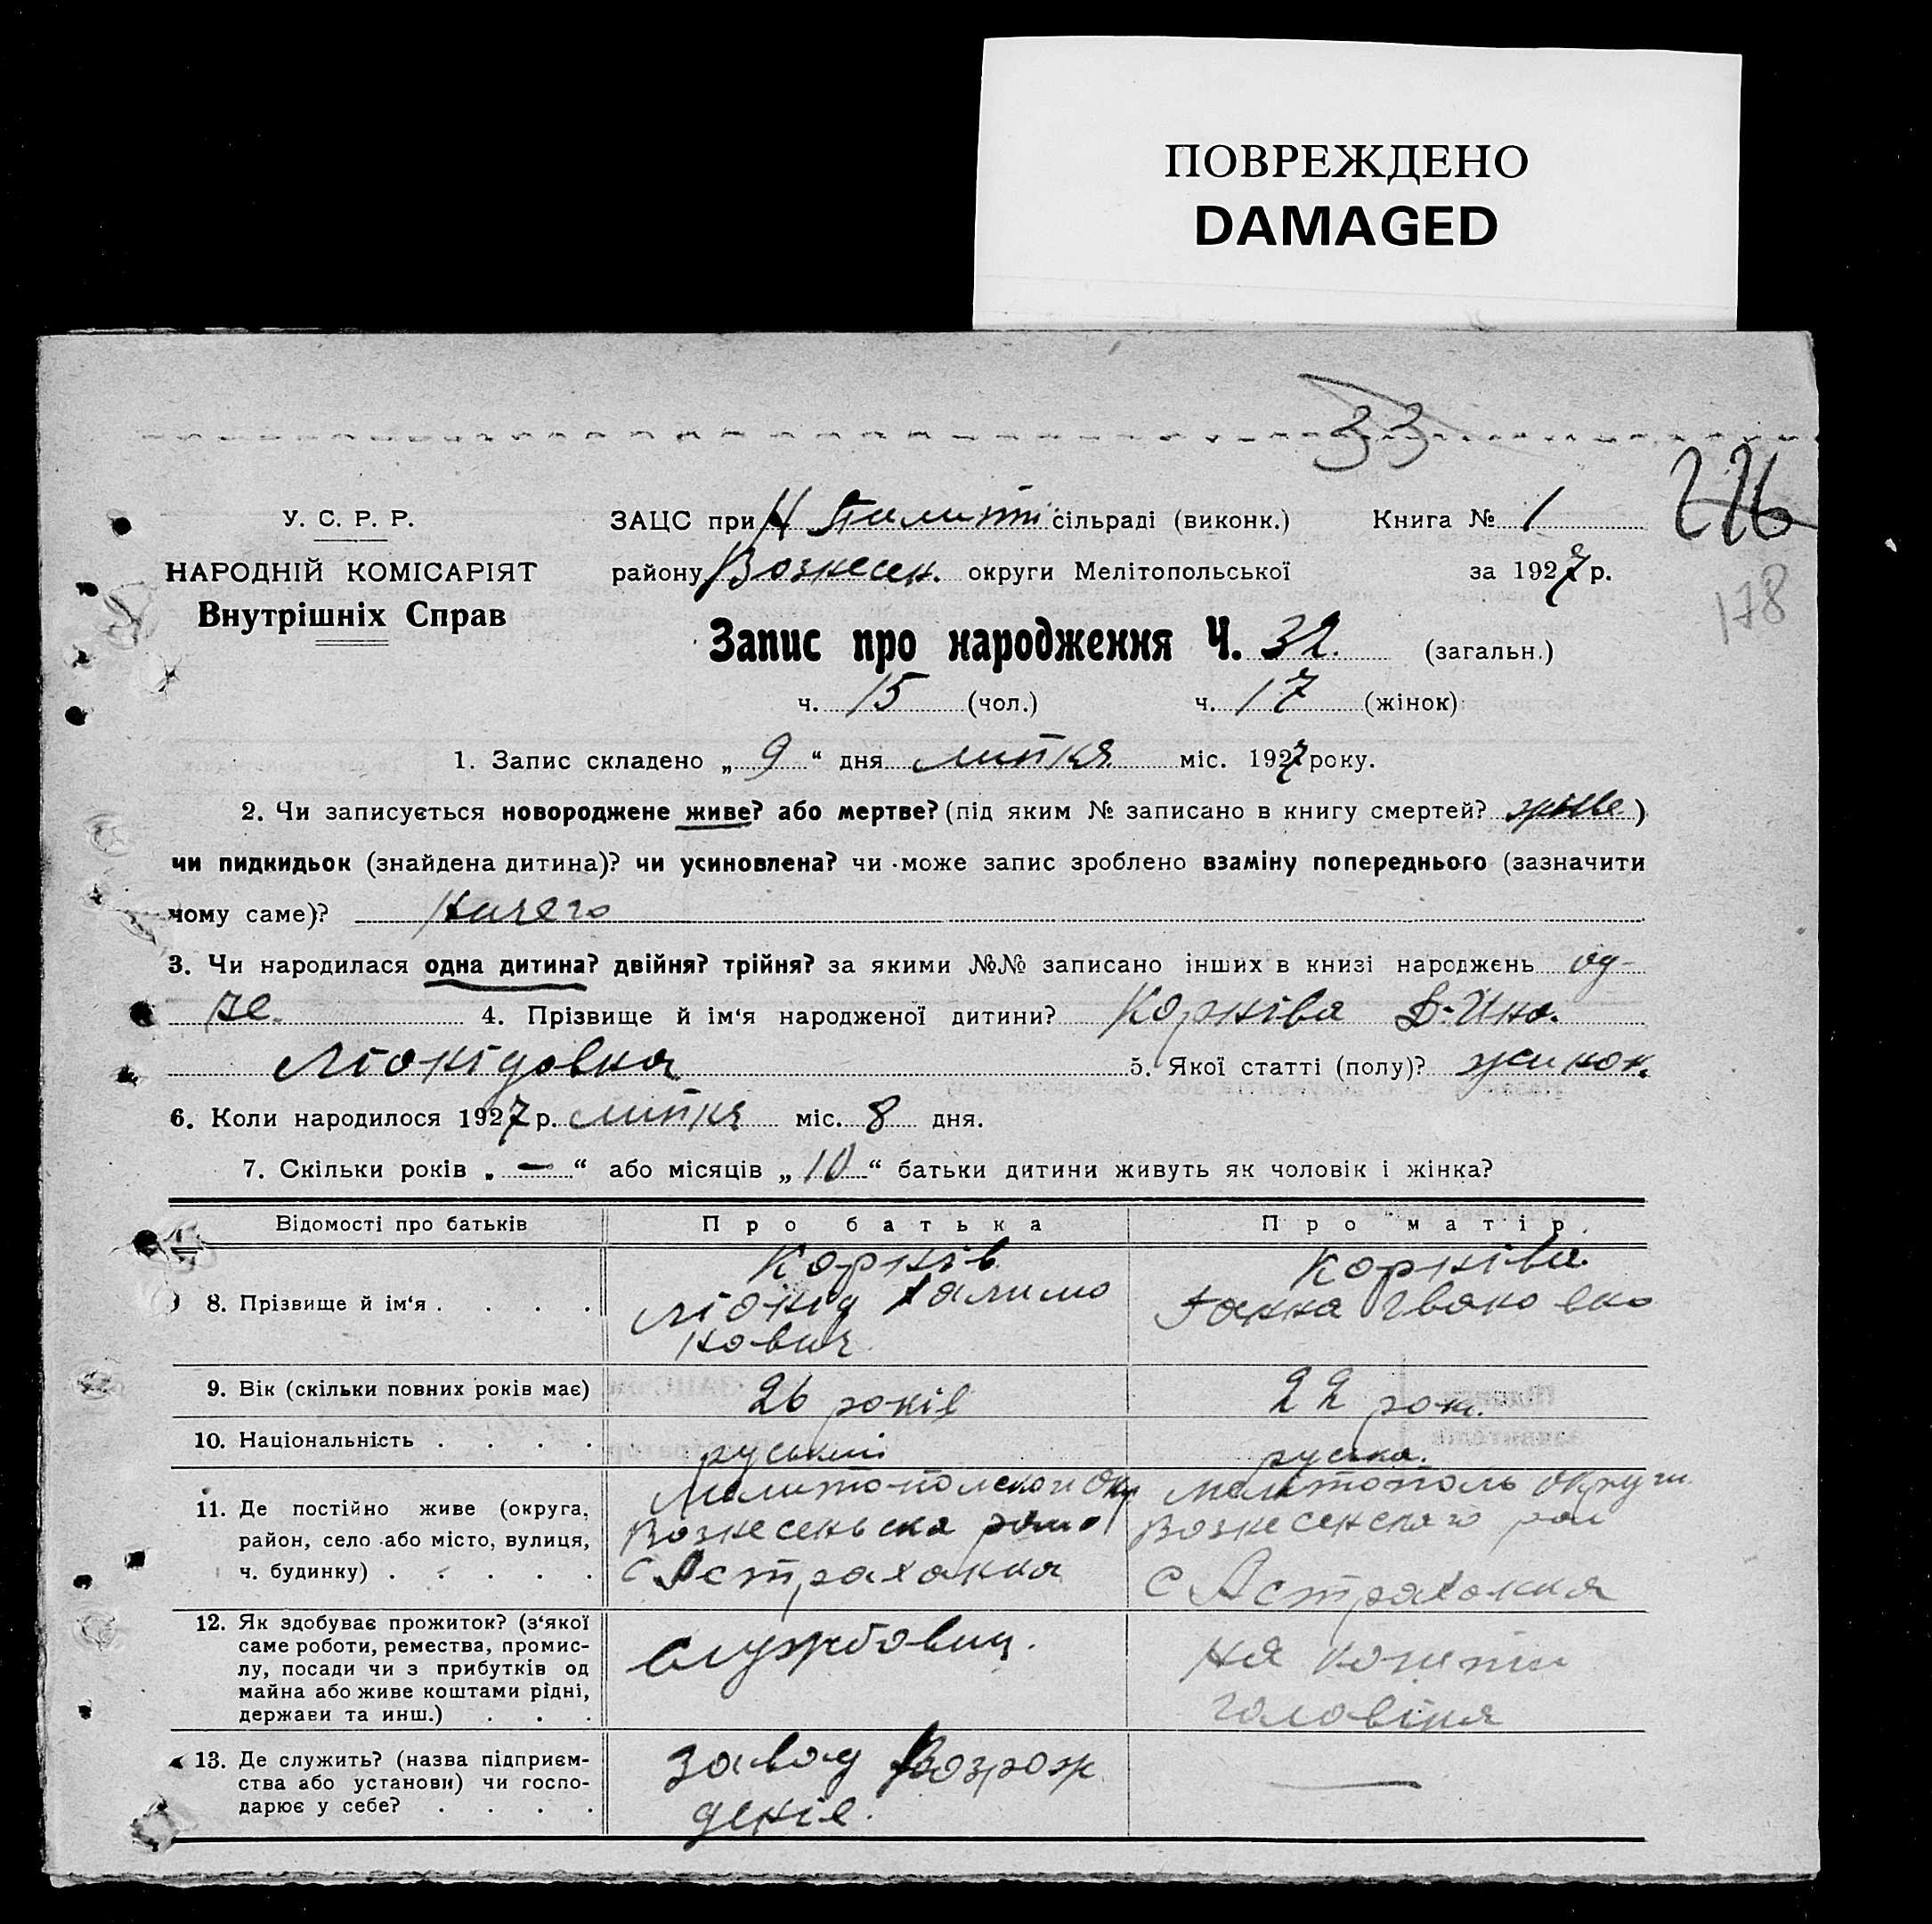 ПОВРЕЖДЕНО
DAMAGED
33
276
178
У. С. Р. Р.
НАРОДНІЙ КОМІСАРІЯТ
Внутрішніх Справ
ЗАЦС при Н сільраді (виконк.) Книга № 1
району Вознесен. округи Мелітопольської за 1927 р.
Запис про народження Ч. 32. (загальн.)
ч. 15 (чол.) ч. 17 (жінок)
1. Запис складено „ 9 “ дня липня міс. 1927 року.
2. Чи записується новороджене живе? або мертве? (під яким № записано в книгу смертей? живе)
чи пидкидьок (знайдена дитина)? чи усиновлена? чи може запис зроблено взаміну попереднього (зазначити
чому саме)? Ничего
3. Чи народилася одна дитина? двійня? трійня? за якими №№ записано інших в книзі народжень од-
не. 4. Прізвище й ім‘я народженої дитини? Корніва
Ліонідовна 5. Якої статті (полу)? жинок.
6. Коли народилося 1927 р. липня міс. 8 дня.
7. Скільки років „ — “ або місяців „ 10 “ батьки дитини живуть як чоловік і жінка?
Відомості про батьків
Про батька
Про матір
8. Прізвище й ім‘я . . . .
Корнів
Ліонід
нович
Корніва
Ганна
9. Вік (скільки повних років має)
26 років
22 рок.
10. Національність . . . .
руський
руська.
11. Де постійно живе (округа,
район, село або місто, вулиця,
ч. будинку) . . . . .
Мелитополской Окр
Вознесеньска
с Астраханка
Мелитополь Округи
Вознесенского рай
С Астраханка
12. Як здобуває прожиток? (з‘якої
саме роботи, ремества, промис-
лу, посади чи з прибутків од
майна або живе коштами рідні,
держави та инш.) . . .
Службовиц.
На кошти
головіка
13. Де служить? (назва підприєм-
ства або установи) чи госпо-
дарює у себе? . . . .
Завод Возрож
деніе.
—